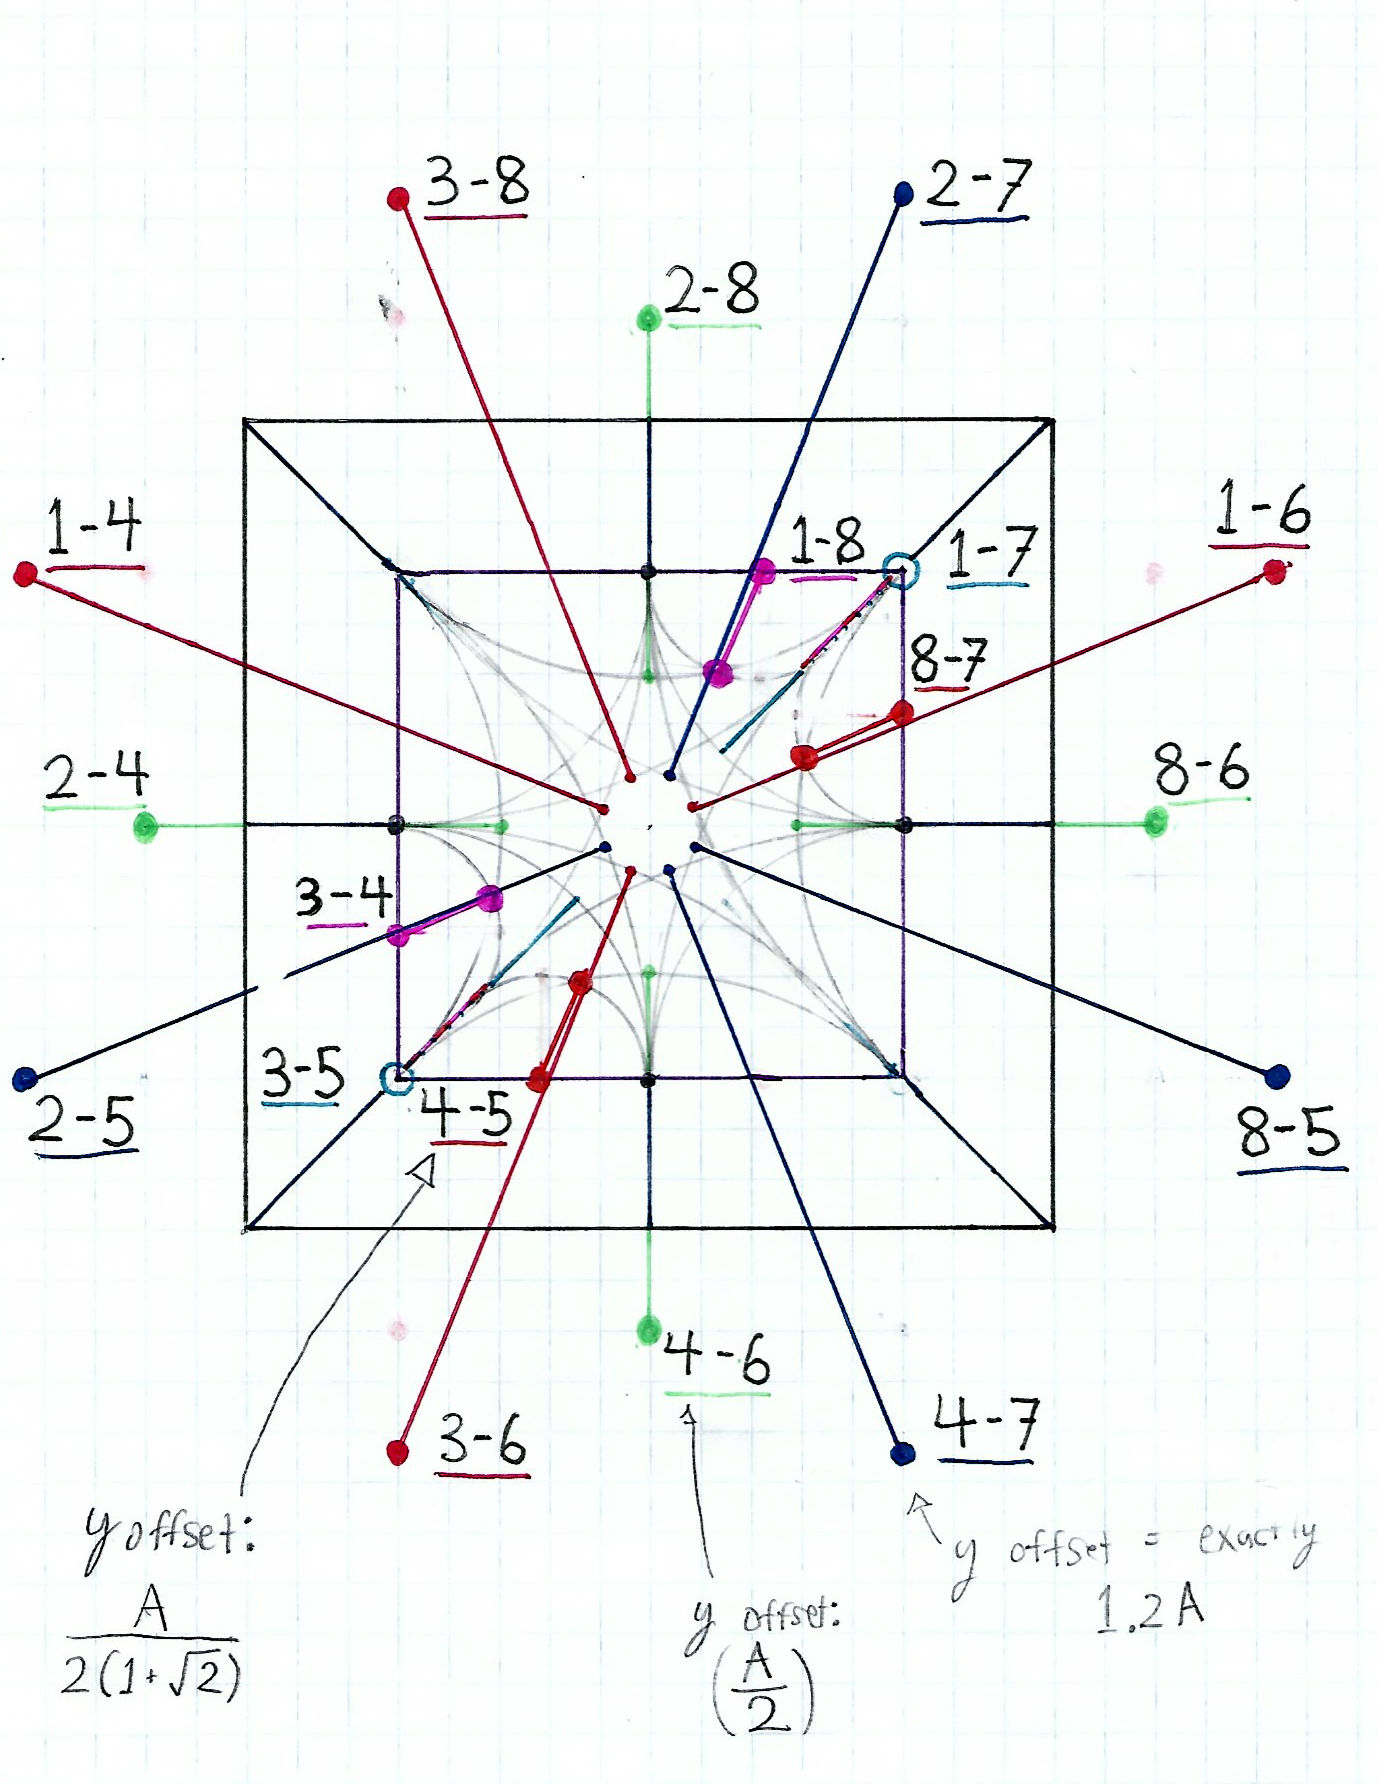 3-8
2-7
2-8
1-4
1-6
1-8
1-7
8-7
2-4
8-6
3-4
3-5
4-5
2-5
8-5
4-6
3-6
4-7
y offset:
A
2(1+√2)
y offset:
(A
2)
y offset = exactly
1.2A